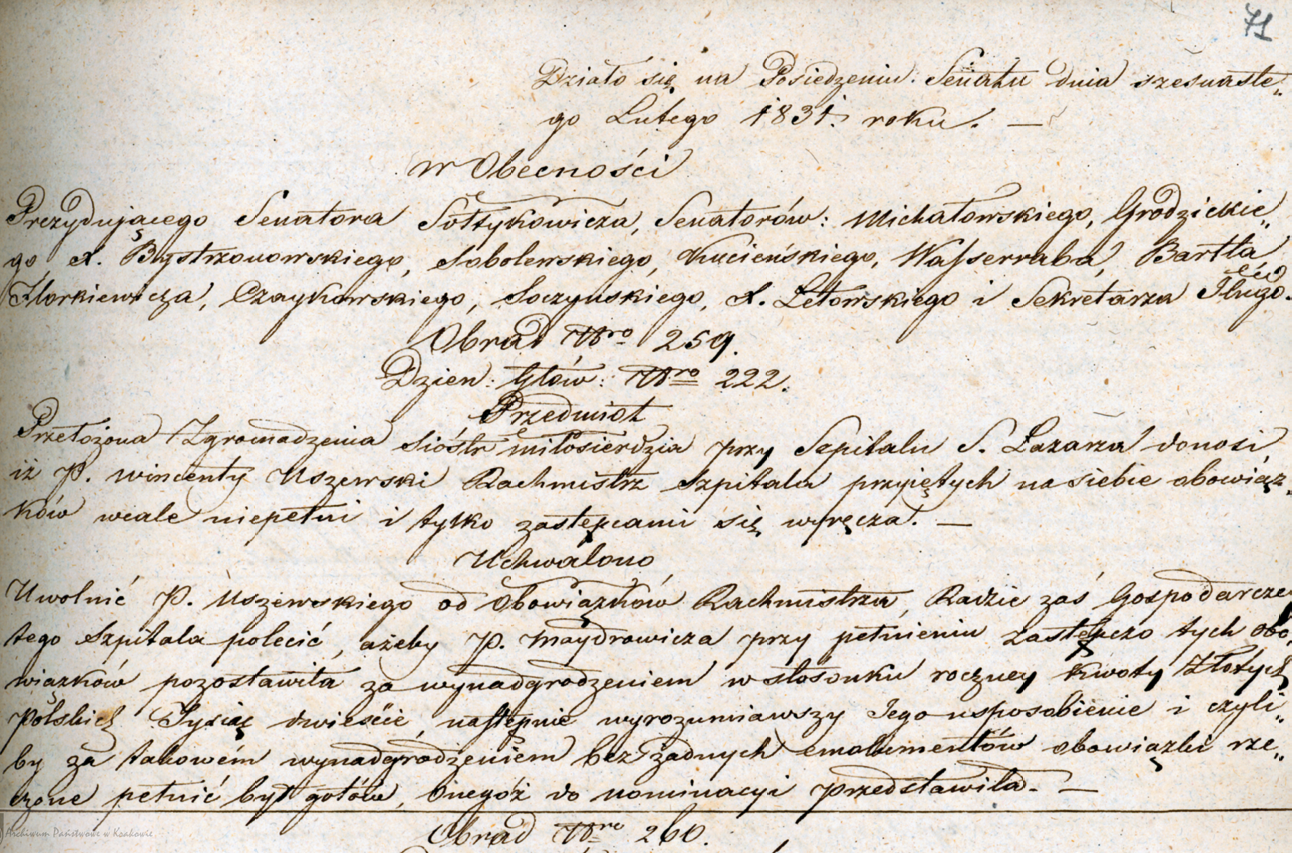 71
Działo się na Posiedzeniu Senatu dnia szesnaste„
go Lutego 1831. roku. —
w Obecności
Prezydującego Senatora Sołtykowicza, Senatorów: Michałowskiego, Grodzickie„
go X. Bystrzonowskiego, Sobolewskiego, Kucieńskiego, Wasserraba, Bartla
Florkiewicza, Czaykowskiego, Soczyńskiego, X. Łetowskiego i Sekretarza
Obrad Nro 259.
Dzien: Głów: Nro 222.
Przedmiot
Przełożona Zgromadzenia Sióstr miłosierdzia przy Szpitalu S. Łazarza donosi
iż P. wincenty Uszewski Rachmistrz Szpitala przyiętych na siebie obowiąz„
ków wcale niepełni i tylko zastępcami się wyręcza. —
Uchwalono
Uwolnić P. Uszewskiego od Obowiązków Rachmistrza, Radzie zaś Gospodarczey
tego Szpitala polecić, ażeby P. Maydrowicza przy pełnieniu zastępczo tych obo„
wiązków pozostawiła za wynadgrodzeniem w stosunku roczney kwoty Złotych
Polskich Tysiąc dwieście, następnie wyrozumiawszy Jego usposobienie i czyli„
by za takowém wynadgrodzeniem bez żadnych emolumentów obowiązki rze„
czone pełnić był gotów, onegóż do nominacyi przedstawiła. —
Obrad Nro 260.
Archiwum Państwowe w Krakowie